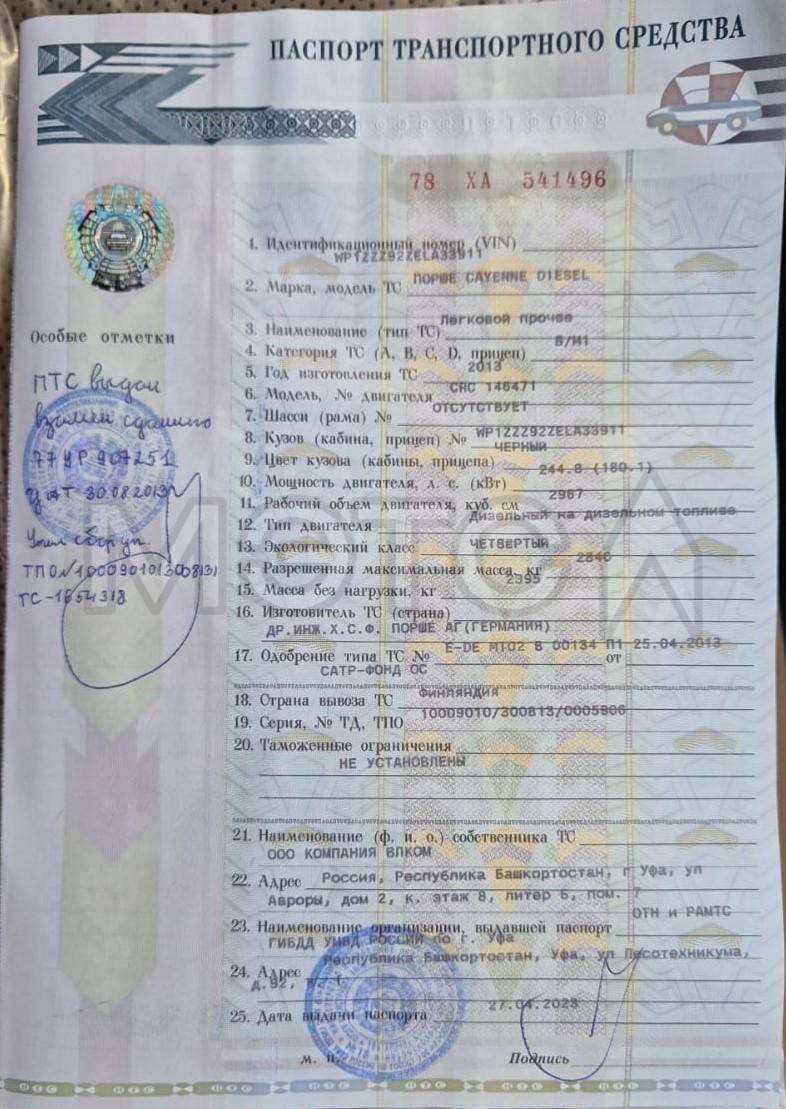 ПАСПОРТ ТРАНСПОРТНОГО СРЕДСТВА
78 ХА 541496
1. Идентификационный номер (VIN)
WP1ZZZ92ZELA33911
2. Марка, модель ТС ПОРШЕ CAYENNE DIESEL
3. Наименование (тип ТС) Легковой прочее
4. Категория ТС (А, В, С, D, прицеп) В/М1
5. Год изготовления ТС 2013
6. Модель, № двигателя CRC 146471
7. Шасси (рама) № ОТСУТСТВУЕТ
8. Кузов (кабина, прицеп) № WP1ZZZ92ZELA33911
9. Цвет кузова (кабины, прицепа) ЧЕРНЫЙ
10. Мощность двигателя, л. с. (кВт) 244.8 (180.1)
11. Рабочий объем двигателя, куб. см 2967
12. Тип двигателя Дизельный на дизельном топливе
13. Экологический класс ЧЕТВЕРТЫЙ
14. Разрешенная максимальная масса, кг 2840
15. Масса без нагрузки, кг 2395
16. Изготовитель ТС (страна)
ДР.ИНЖ.Х.С.Ф. ПОРШЕ АГ(ГЕРМАНИЯ)
17. Одобрение типа ТС № E-DE MT02 B 00134 П1 от 25.04.2013
САТР-ФОНД ОС
18. Страна вывоза ТС ФИНЛЯНДИЯ
19. Серия, № ТД, ТПО 10009010/300813/0005906
20. Таможенные ограничения
НЕ УСТАНОВЛЕНЫ
21. Наименование (ф. и. о.) собственника ТС
ООО КОМПАНИЯ ВЛКОМ
22. Адрес Россия, Республика Башкортостан, г Уфа, ул
Авроры, дом 2, к. этаж 8, литер Б, пом. 7
23. Наименование организации, выдавшей паспорт ОТН и РАМТС
ГИБДД УМВД РОССИИ по г. Уфа
24. Адрес Республика Башкортостан, Уфа, ул Лесотехникума,
д.92,
25. Дата выдачи паспорта 27.04.2023
м. п.
Подпись
Особые отметки
ПТС выдан
взамен сданного
77 УР 907251
ЦАТ 30.08.2013
Утил сбор уп.
ТПО №
ТС-1654318
МОТОЛ